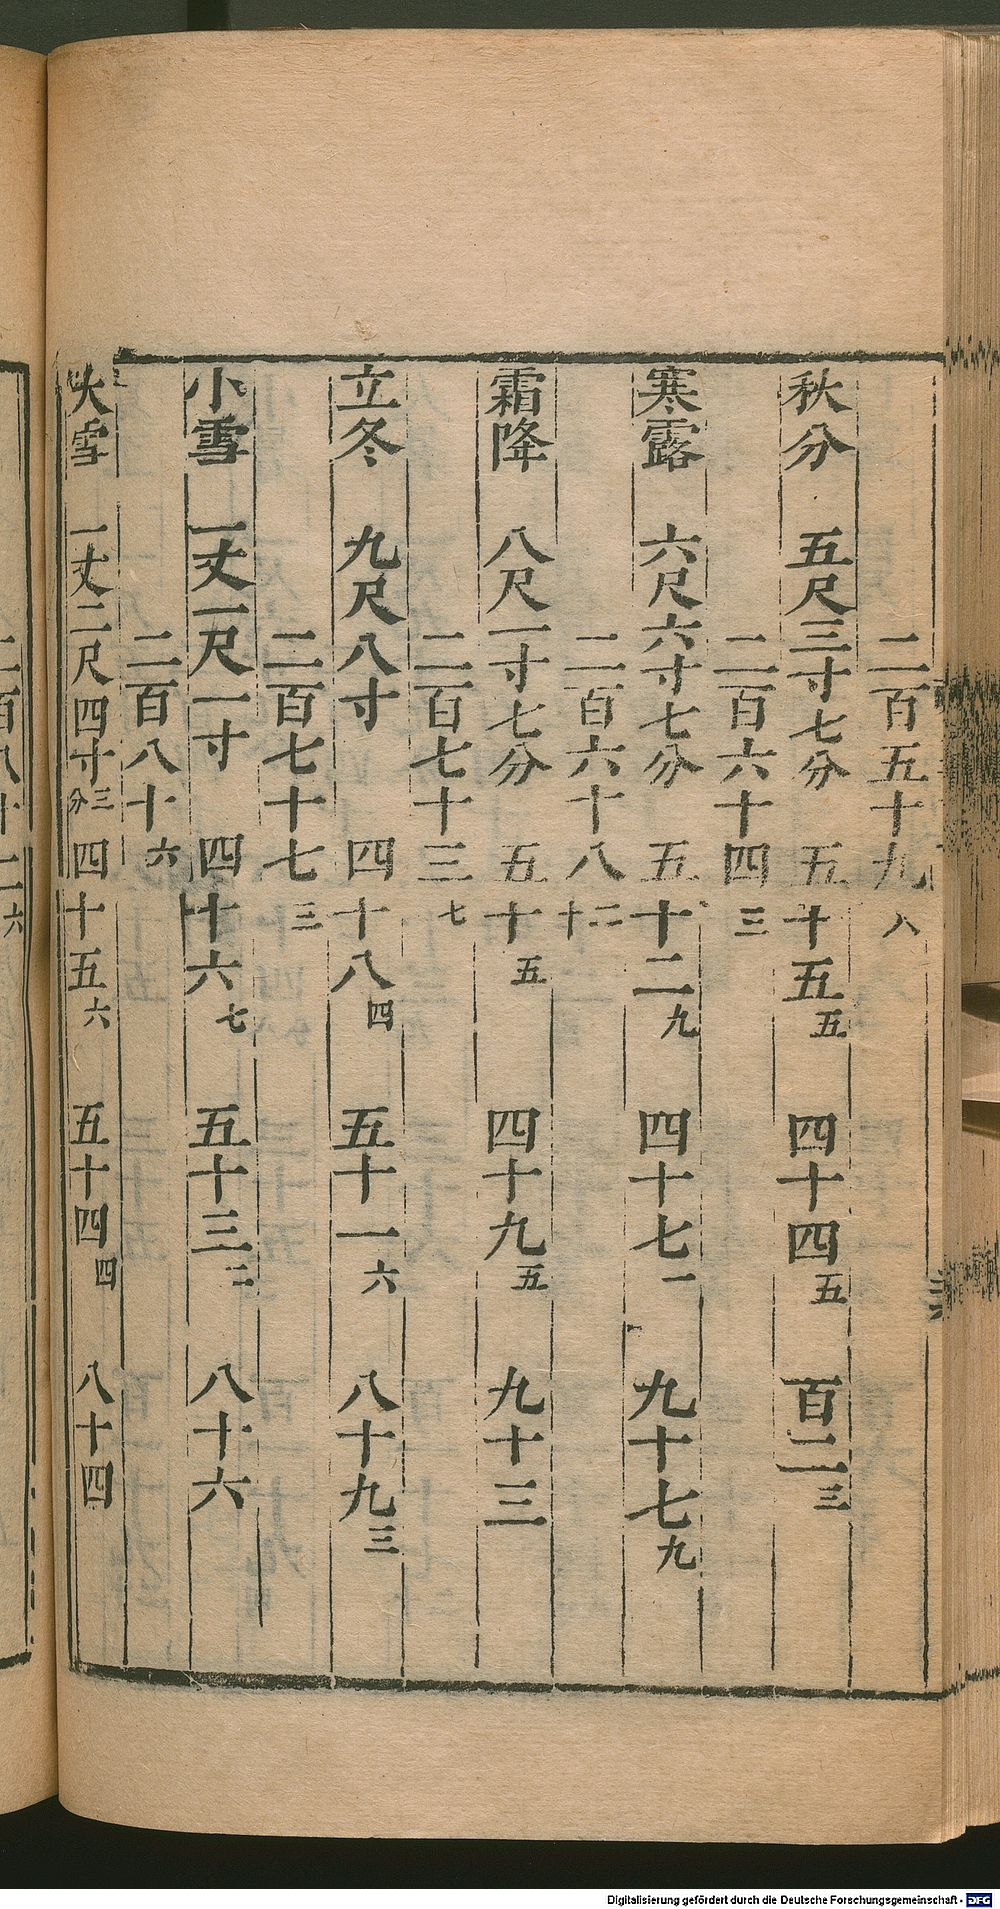 二百五十九八
秋分 五尺三寸七分 五十五五 四十四五 百二三
二百六十四三
寒露 六尺六寸七分 五十二九 四十七一 九十七九
二百六十八二十
霜降 八尺一寸七分 五十五 四十九五 九十三
二百七十三七
立冬 九尺八寸 四十八四 五十一六 八十九三
二百七十七三
小雪 一丈一尺一寸 四十六七 五十三二 八十六
二百八十六
大雪 一丈二尺四寸三分 四十五六 五十四四 八十四
二百八十二六
Digitalisierung gefördert durch die Deutsche Forschungsgemeinschaft - DFG